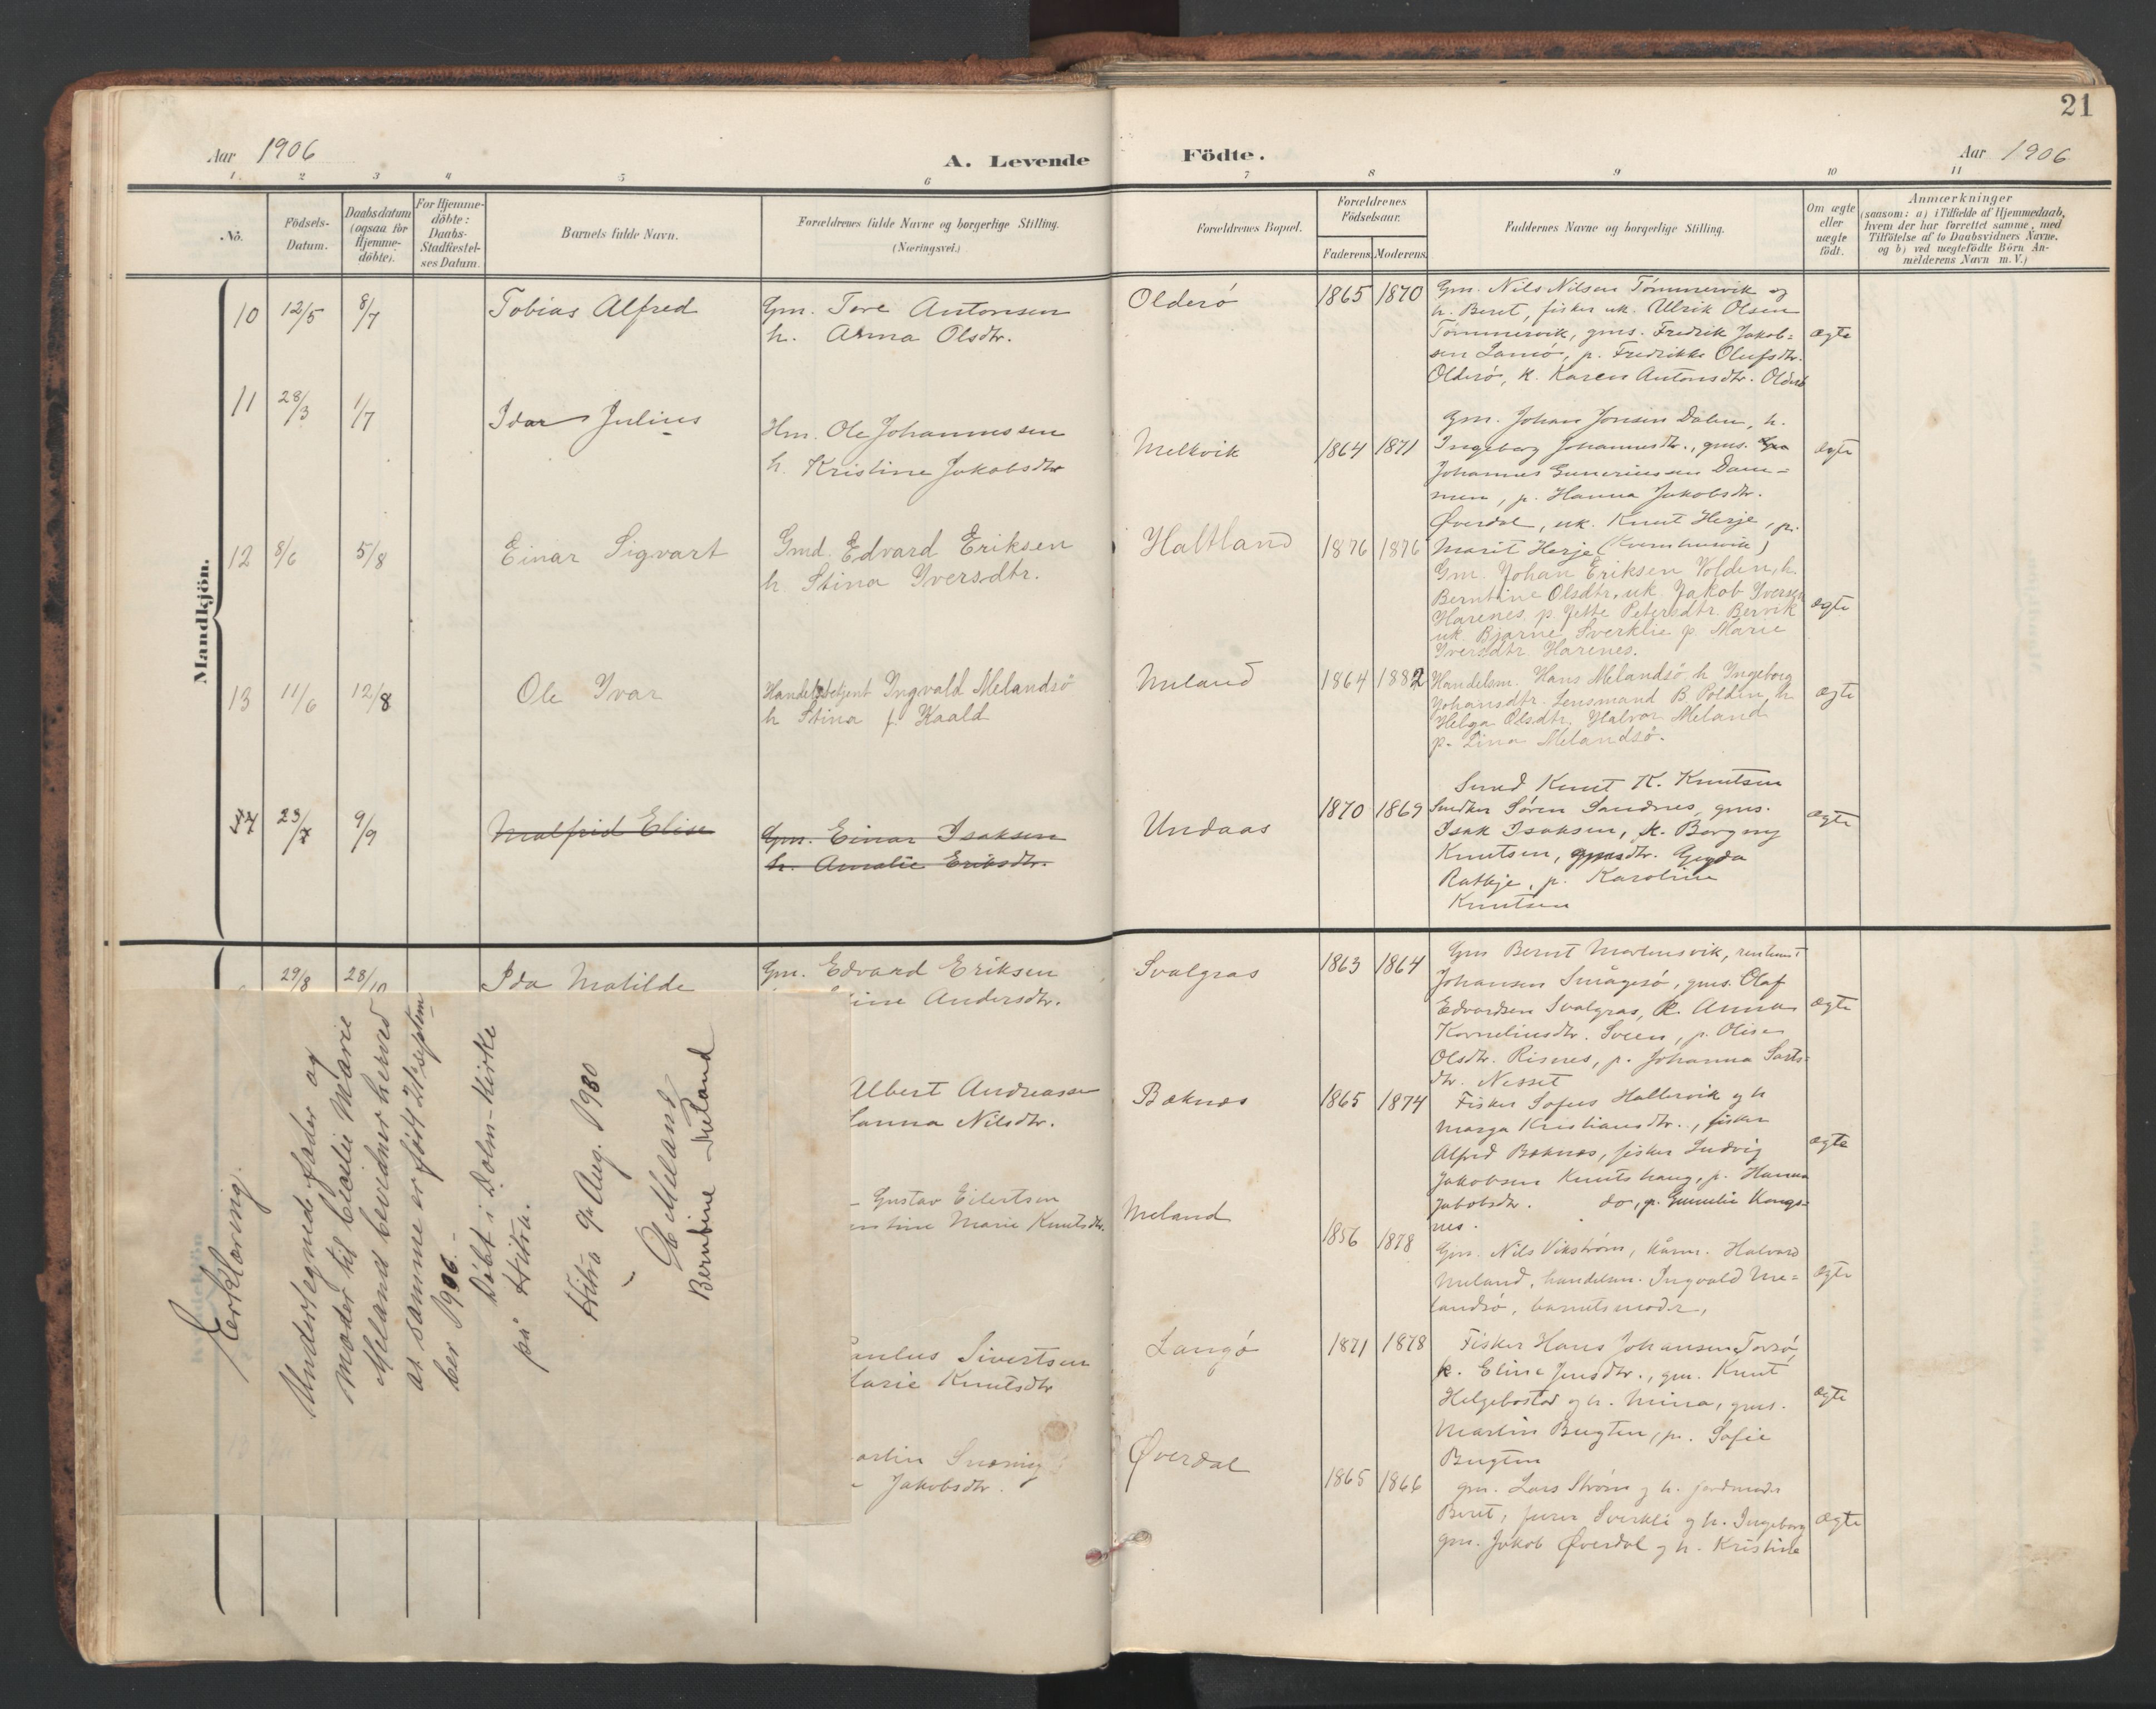 21
Aar 1906
A. Levende
Födte.
Aar 1906
1 2 3 4 5 6 7 8 9 10 11
Nö.
Födsels-
Datum.
Daabsdatum
(ogsaa for
Hjemme-
döbte).
For Hjemme-
döbte:
Daabs-
Stadfæstel-
ses Datum.
Barnets fulde Navn.
Forældrenes fulde Navne og borgerlige Stilling.
(Næringsvei.)
Forældrenes Bopæl.
Forældrenes
Födselsaar.
Faderens. Moderens.
Faddernes Navne og borgerlige Stilling.
Om ægte
eller
uægte
födt.
Anmærkninger
(saasom: a) i Tilfælde af Hjemmedaab,
hvem der har forrettet samme, med
Tilföielse af to Daabsvidners Navne,
og b) ved uægtefödte Börn An-
melderens Navn m. V.)
Mandkjön.
10 12/5 8/7 Tobias Alfred
Gm. Tore Antonsen
h. Anna Olsdtr.
Olderö 1865 1870
Gm. Nils Nilsen Tömmervik og
h. Beret, fisker uk. Ulrik Olsen
Tömmervik, gms. Fredrik Jakob-
sen Lamö, p. Fredrikke Olufsdtr.
Olderö, k. Karen Antonsdtr. Olderö
ægte
11 28/3 1/7 Idar Julius
Hm. Ole Johannessen
h. Kristine Jakobsdtr
Melkvik 1864 1871
Gm. Johan Jonsen Dalen, h.
Ingeborg Johannesdtr., gms.
Johannes Guneriussen Dam-
men, p. Hanna Jakobsdtr.
Øverdal, uk. Knut Herje, p.
Marit Herje (Kvernhusvik)
ægte
12 8/6 5/8 Einar Sigvart
Gmd. Edvard Eriksen
h. Stina Iversdtr.
Haltland 1876 1876
Gm. Johan Eriksen Volden, h.
Berntine Olsdtr. uk. Jakob Iversen
Harenes p. Jette Petersdtr. Bervik
uk. Bjarne Sverklie p. Marie
Iversdtr. Harenes.
ægte
13 11/6 12/8 Ole Ivar
Handelsbetjent Ingvald Melandsö
h Stina f. Kaald
Meland 1864 1882
Handelsm. Hans Melandsö h Ingeborg
Johansdtr. Lensmand B. Polden, h.
Helga Olsdtr. Halvor Meland
p. Lina Melandsö.
ægte
14 23/7 9/9 Malfrid Elise
Gm. Einar Isaksen
h. Amalie Eriksdtr.
Undaas 1870 1869
Knut K. Knutsen
Snedker Sören Sandnes, gms.
Isak Isaksen, k. Borgny
Knutsen, gmsdtr. Gyda
Ratkje, p. Karoline
Knutsen
ægte
29/8 28/10 Ida Matilde
Gm. Edvard Eriksen
ine Andersdtr.
Svalgras 1863 1864
Gm Bernt Martensvik,
Johansen Smågesö, gms. Olaf
Edvardsen Svalgras, k. Anna
Korneliusdtr. Sveen, p. Olise
Olsdtr. Risnes, p. Johanna
dtr. Nesset
ægte
Albert Andreassen
anna Nilsdtr.
Baknes 1865 1874
Fisker Sofus Hallervik og h
Marga Kristiansdtr., fisker
Alfred Baknes, fisker Ludvig
Jakobsen Knutshaug, p. Hanna
Jakobsdtr. do, p. Gunelie Kongs-
nes.
ægte
Gustav Eilertsen
Marie Knutsdtr.
Meland 1856 1878
Gm. Nils Vikström, Halvard
Meland, handelsm. Ingvald Me-
landsö, barnets moder,
ægte
aulus Sivertsen
arie Knutsdtr
Langö 1871 1878
Fisker Hans Johansen Torsö,
k. Eline Jensdtr., gm. Knut
Helgebostad og h. Mina, gms.
Martin Bugten, p. Sofie
Bugten
ægte
artin
Jakobsdtr.
Øverdal 1865 1866
gm. Lars Ström og h. jordmoder
Beret, furer Sverkli og h. Ingeborg
gm. Jakob Øverdal og h. Kristine
ægte
Kvindekjön
Erklæring.
Undertegnede fader og
moder til Cecilie Marie
Meland bevidner herved
at samme er født 21 septem
ber 1906.-
Døbt i Dolm-kirke
på Hitra.
Hitra 9/ Aug. 1980
O Meland
Berntine Meland